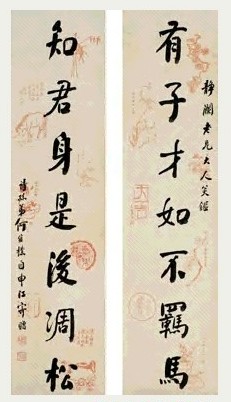 靜瀾老兄大人笑鑑
有子才如不羈馬
知君身是後凋松
詩孫弟何維樸自申江寄贈